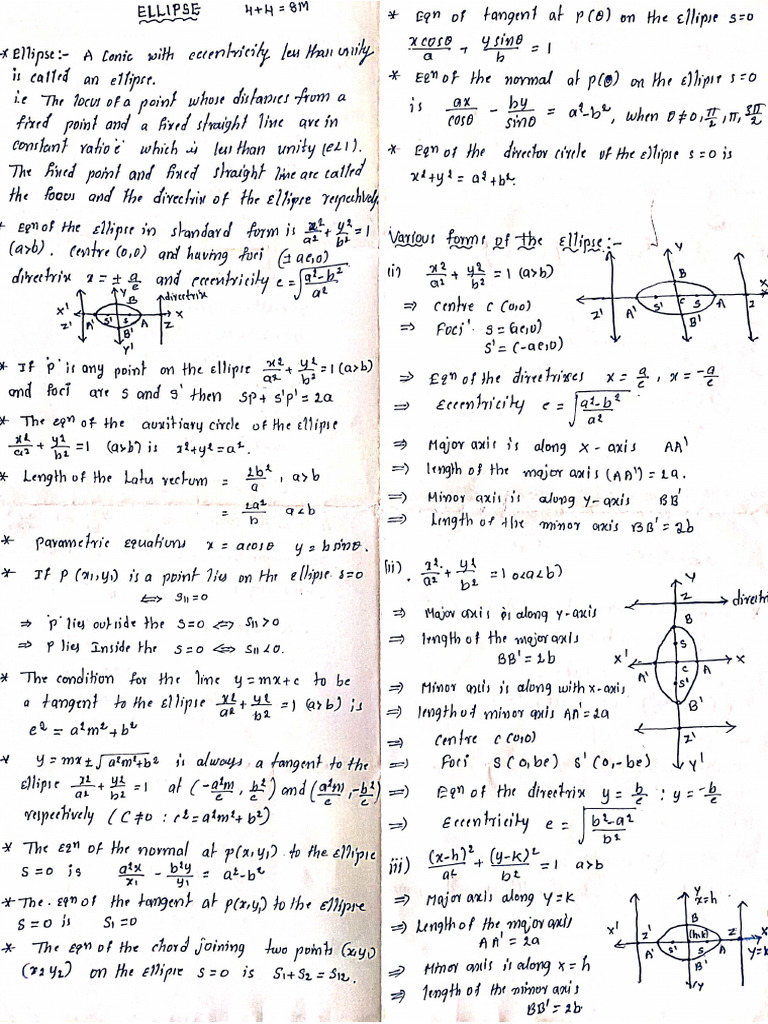 ELLIPSE 4+4=8M
* Ellipse:- A conic with eccentricity less than unity
is called an ellipse.
i.e The locus of a point whose distances from a
fixed point and a fixed straight line are in
constant ratio 'e' which is less than unity (e<1).
The fixed point and fixed straight line are called
the focus and the directrix of the ellipse respectively.
* Eqn of the ellipse in standard form is x²/a² + y²/b² = 1
(a>b). centre (0,0) and having foci (± ae,0)
directrix x = ± a/e and eccentricity e = √(a²-b²/a²)
Y directrix
B
X' S' S X
Z' A' A Z
B'
Y'
* If 'p' is any point on the ellipse x²/a² + y²/b² = 1 (a>b)
and foci are s and s' then SP + S'P' = 2a
* The eqn of the auxitiary circle of the ellipse
x²/a² + y²/b² = 1 (a>b) is x²+y² = a².
* Length of the Latus rectum = 2b²/a , a>b
= 2a²/b a<b
* parametric equations x = acosθ y = bsinθ.
* If P (x₁,y₁) is a point lies on the ellipse s=0
⇔ S₁₁=0
⇒ 'p' lies outside the S=0 ⇔ S₁₁>0
⇒ P lies Inside the S=0 ⇔ S₁₁<0.
* The condition for the line y=mx+c to be
a tangent to the ellipse x²/a² + y²/b² = 1 (a>b) is
e² = a²m²+b²
* y = mx ± √a²m²+b² is always a tangent to the
ellipse x²/a² + y²/b² = 1 at (-a²m/c, b²/c) and (a²m/c, -b²/c)
respectively (C≠0 : c²=a²m²+b²)
* The eqn of the normal at p(x₁y₁) to the ellipse
S=0 is a²x/x₁ - b²y/y₁ = a²-b²
* The. eqn of the tangent at p(x₁y₁) to the ellipse
S=0 is S₁=0
* The eqn of the chord joining two points (x₁y₁)
(x₂y₂) on the ellipse S=0 is S₁+S₂=S₁₂.
* Eqn of tangent at P(θ) on the ellipse s=0
xcosθ/a + ysinθ/b = 1
* Eqn of the normal at p(θ) on the ellipse s=0
is ax/cosθ - by/sinθ = a²-b², when θ≠0, π/2, π, 3π/2
* Eqn of the director circle of the ellipse s=0 is
x²+y² = a²+b².
Various forms of the ellipse:-
(i) x²/a² + y²/b² = 1 (a>b)
⇒ centre c (0,0)
⇒ Foci S=(ae,0)
S'=(-ae,0)
Y
B
S' C S X
Z' A' A Z
B'
⇒ Eqn of the directrixes x = a/e , x = -a/e
⇒ Eccentricity e = √(a²-b²/a²)
⇒ Major axis is along x-axis AA'
⇒ length of the major axis (AA') = 2a.
⇒ Minor axis is along y-axis BB'
⇒ length of the minor axis BB' = 2b
(ii) . x²/a² + y²/b² = 1 0<a<b)
⇒ Major axis is along y-axis
⇒ length of the major axis
BB' = 2b
⇒ Minor axis is along with x-axis
⇒ length of minor axis AA' = 2a
⇒ centre c(0,0)
⇒ Foci S(0,be) S'(0,-be)
Y
Z directri
B
S
X' C X
A' A
S'
B'
Z'
Y'
⇒ Eqn of the directrix y = b/e : y = -b/e
⇒ Eccentricity e = √(b²-a²/b²)
iii) (x-h)²/a² + (y-k)²/b² = 1 a>b
⇒ Major axis along y=k
⇒ Length of the major axis
AA' = 2a
⇒ Minor axis is along x=h
⇒ length of the minor axis
BB' = 2b
Y x=h
B
X' Z' (h,k) Z X
A' S' S A Y=k
B'
Y